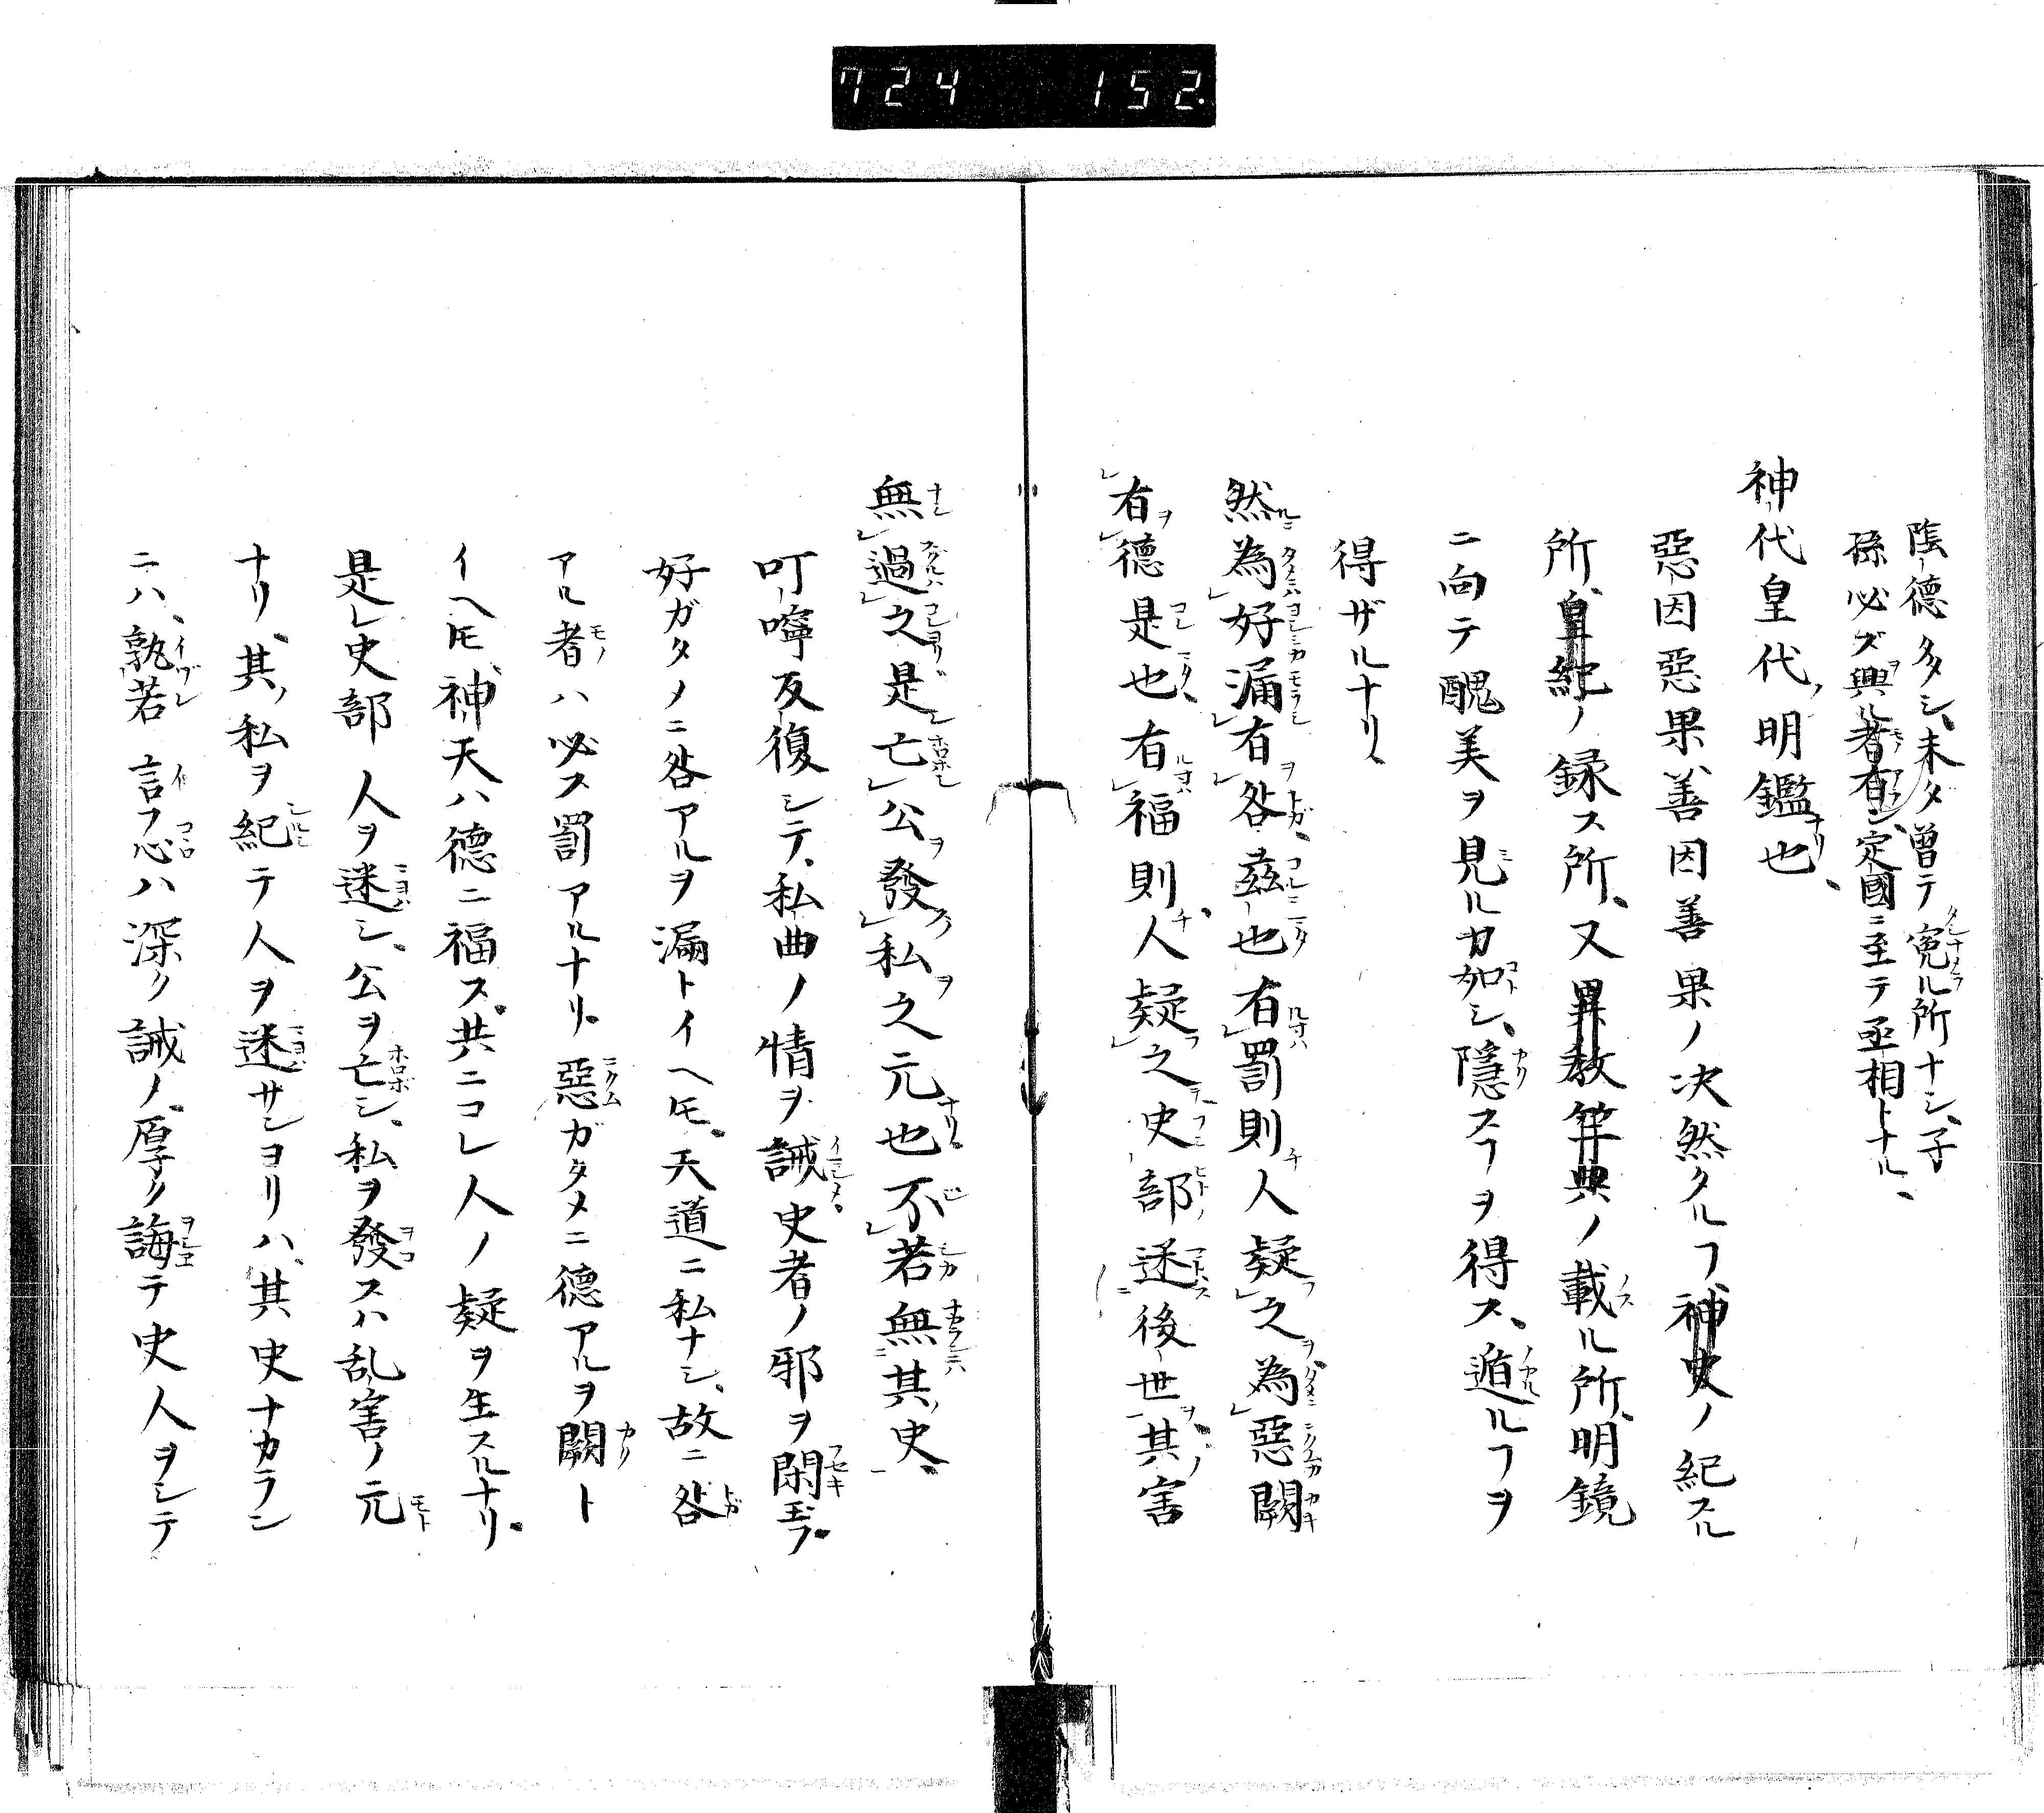 724 152.
陰德多シ、未ダ曽テ寃ル所ナシ、子
孫必ズ興ル者有ン、定國ニ至テ丞相トナル、
神代皇代ノ明鑑也、
惡因惡果、善因善果ノ决然タルヿ、神史ノ紀スル
所、皇紀ノ録ス所、又異教竺典ノ載ル所、明鏡
ニ向テ醜美ヲ見ルカ如シ、隱スヿヲ得ス、遁ルヿヲ
得ザルナリ、
然為好漏有咎茲也有罰則人疑之為惡闕
有德是也有福則人疑之史部迷後世其害
無過之是亡公發私之元也不若無其史
叮嚀反復シテ、私曲ノ情ヲ誡史者ノ邪ヲ閑玉フ、
好ガタメニ咎アルヲ漏トイヘ𪜈、天道ニ私ナシ、故ニ咎
アル者ハ必ス罰アルナリ、惡ガタメニ德アルヲ闕ト
イヘ𪜈、神天ハ德ニ福ス、共ニコレ人ノ疑ヲ生スルナリ、
是レ史部人ヲ迷シ、公ヲ亡シ、私ヲ發スハ乱害ノ元
ナリ、其ノ私ヲ紀テ人ヲ迷サンヨリハ、其史ナカラン
ニハ、孰若言フ心ハ深ク誡メ、厚ク誨テ史人ヲシテ